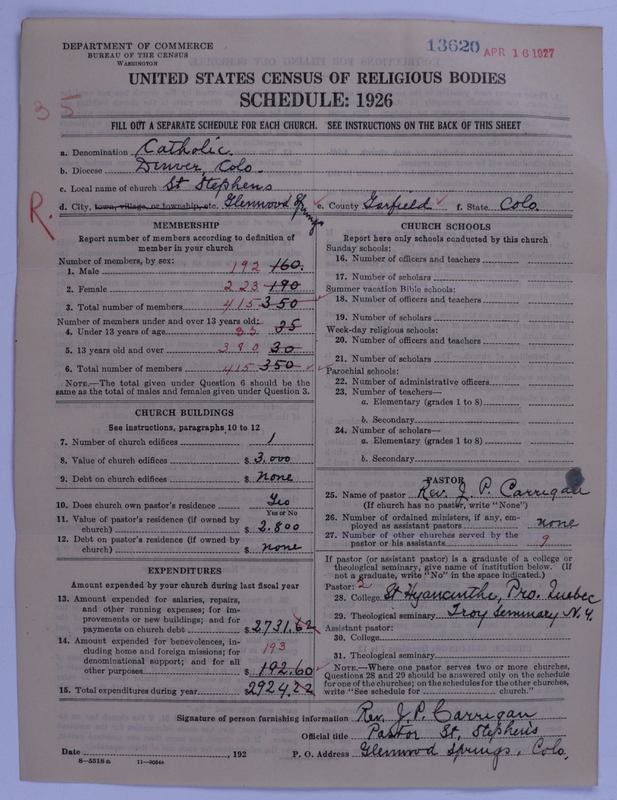 DEPARTMENT OF COMMERCE
BUREAU OF THE CENSUS
WASHINGTON
13620 APR 16 1927
UNITED STATES CENSUS OF RELIGIOUS BODIES
SCHEDULE: 1926
35
FILL OUT A SEPARATE SCHEDULE FOR EACH CHURCH. SEE INSTRUCTIONS ON THE BACK OF THIS SHEET
a. Denomination Catholic.
b. Diocese Denver, Colo.
c. Local name of church St Stephens
d. City, town, village, or township, etc. Glenwood Springs e. County Garfield f. State Colo.
R.
MEMBERSHIP
Report number of members according to definition of
member in your church
Number of members, by sex:
1. Male 192 160.
2. Female 223 190
3. Total number of members 415 350
Number of members under and over 13 years old:
4. Under 13 years of age 35 25
5. 13 years old and over 380 30
6. Total number of members 415 350
NOTE.—The total given under Question 6 should be the
same as the total of males and females given under Question 3.
CHURCH BUILDINGS
See instructions, paragraphs 10 to 12
7. Number of church edifices 1
8. Value of church edifices $ 3.000
9. Debt on church edifices $ None
10. Does church own pastor's residence Yes
Yes or No
11. Value of pastor's residence (if owned by
church) $ 2.800
12. Debt on pastor's residence (if owned by
church) $ none
EXPENDITURES
Amount expended by your church during last fiscal year
13. Amount expended for salaries, repairs,
and other running expenses; for im-
provements or new buildings; and for
payments on church debt $ 2731.62
14. Amount expended for benevolences, in-
cluding home and foreign missions; for
denominational support; and for all
other purposes $ 193 192.60
15. Total expenditures during year 2924.22
CHURCH SCHOOLS
Report here only schools conducted by this church
Sunday schools:
16. Number of officers and teachers
17. Number of scholars
Summer vacation Bible schools:
18. Number of officers and teachers
19. Number of scholars
Week-day religious schools:
20. Number of officers and teachers
21. Number of scholars
Parochial schools:
22. Number of administrative officers
23. Number of teachers—
a. Elementary (grades 1 to 8)
b. Secondary
24. Number of scholars—
a. Elementary (grades 1 to 8)
b. Secondary
PASTOR
25. Name of pastor Rev. J. P. Carrigan
(If church has no pastor, write "None")
26. Number of ordained ministers, if any, em-
ployed as assistant pastors none
27. Number of other churches served by the
pastor or his assistants 9
If pastor (or assistant pastor) is a graduate of a college or
theological seminary, give name of institution below. (If
not a graduate, write "No" in the space indicated.)
Pastor: 2
28. College St Hyancinthe, Pro. Quebec
29. Theological seminary Troy Seminary N.Y.
Assistant pastor:
30. College
31. Theological seminary
NOTE.—Where one pastor serves two or more churches,
Questions 28 and 29 should be answered only on the schedule
for one of the churches; on the schedules for the other churches,
write "See schedule for church."
Signature of person furnishing information Rev. J. P. Carrigan
Official title Pastor St. Stephen's
Date , 192 P. O. Address Glenwood Springs, Colo.
8—5518a